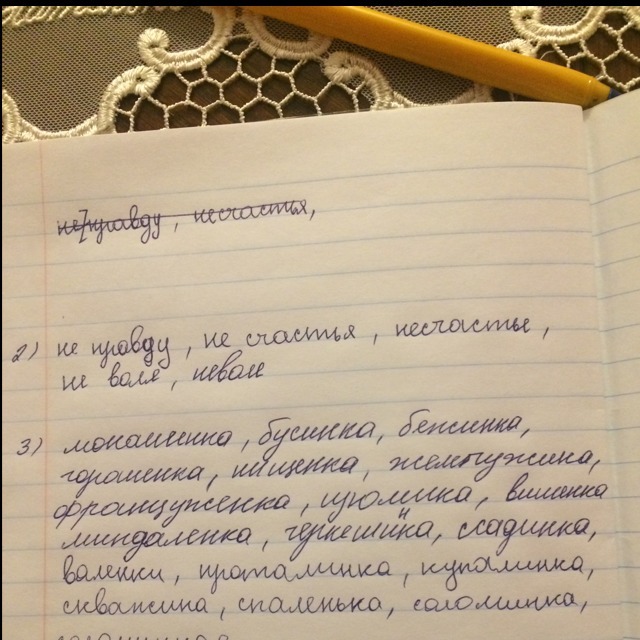 не правду, несчастья,
2) не правду, не счастья, несчастье,
не воля, неволе
3) монашенка, бусинка, беженка,
горошенка, нищенка, жемчужина,
француженка, изюминка, вишенка
миндаленка, черкешинка, ссадинка,
валенки, проталинка, купалинка,
скважина, спаленька, соломинка,